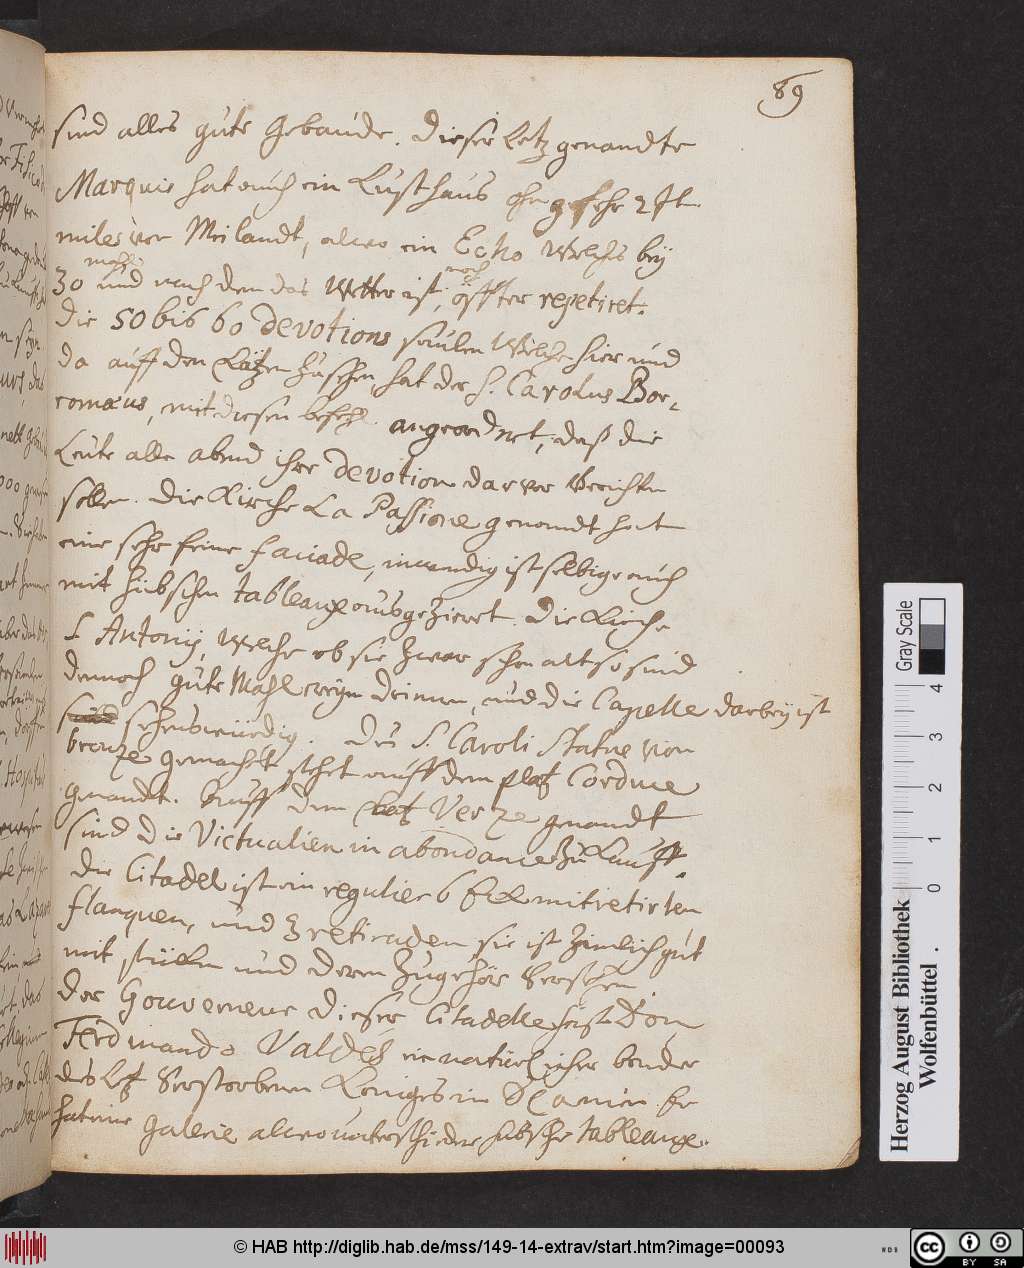 89
sind alles gute Gebäude. Dieser Letz genandte
Marquis hat auch ein Lusthaus ohngefehr 2 Jt.
miles von Meilandt, alwo ein Echo welches bey
30 mahl und nach dem das Wetter ist, noch öffter repetiret.
Die 50 bis 60 devotions seulen welche hier und
da auff den Plätzen zusehen, hat der S. Carolus Bor-
romæus, mit diesen befehl angeordnet, daß die
Leute alle abend ihre devotion darvor verrichten
sollen. Die Kirche La Passione genandt hat
eine sehr feine faciade, inwendig ist selbige auch
mit hübschen tableaux ausgezieret. Die Kirche
S Antonij, welche ob sie zwar schon alt so sind
dennoch gute Mahlereyen drinnen, und die Capelle darbey ist
sehenswürdig. Des S. Caroli Statue von
bronze gemacht stehet auff dem platz Corduce
genandt. Auff dem platz Verze genandt
sind die Victualien in abondance zu Kauff.
Die Citadel ist ein regulier 6 Eck mit retirten
flanquen, und 3 retiraden sie ist zimlich gut
mit stücken und deren Zugehör versehen.
Der Gouverneur dieser Citadelle heist Don
Ferdinando Valdes ein natürlicher bruder
des Letz verstorbenen Königes in Spanien. Er
hat eine Galerie alwo unterschiedene hübsche tableaux.
Herzog August Bibliothek
Wolfenbüttel
Gray Scale
0 1 2 3 4
© HAB http://diglib.hab.de/mss/149-14-extrav/start.htm?image=00093
CC BY SA